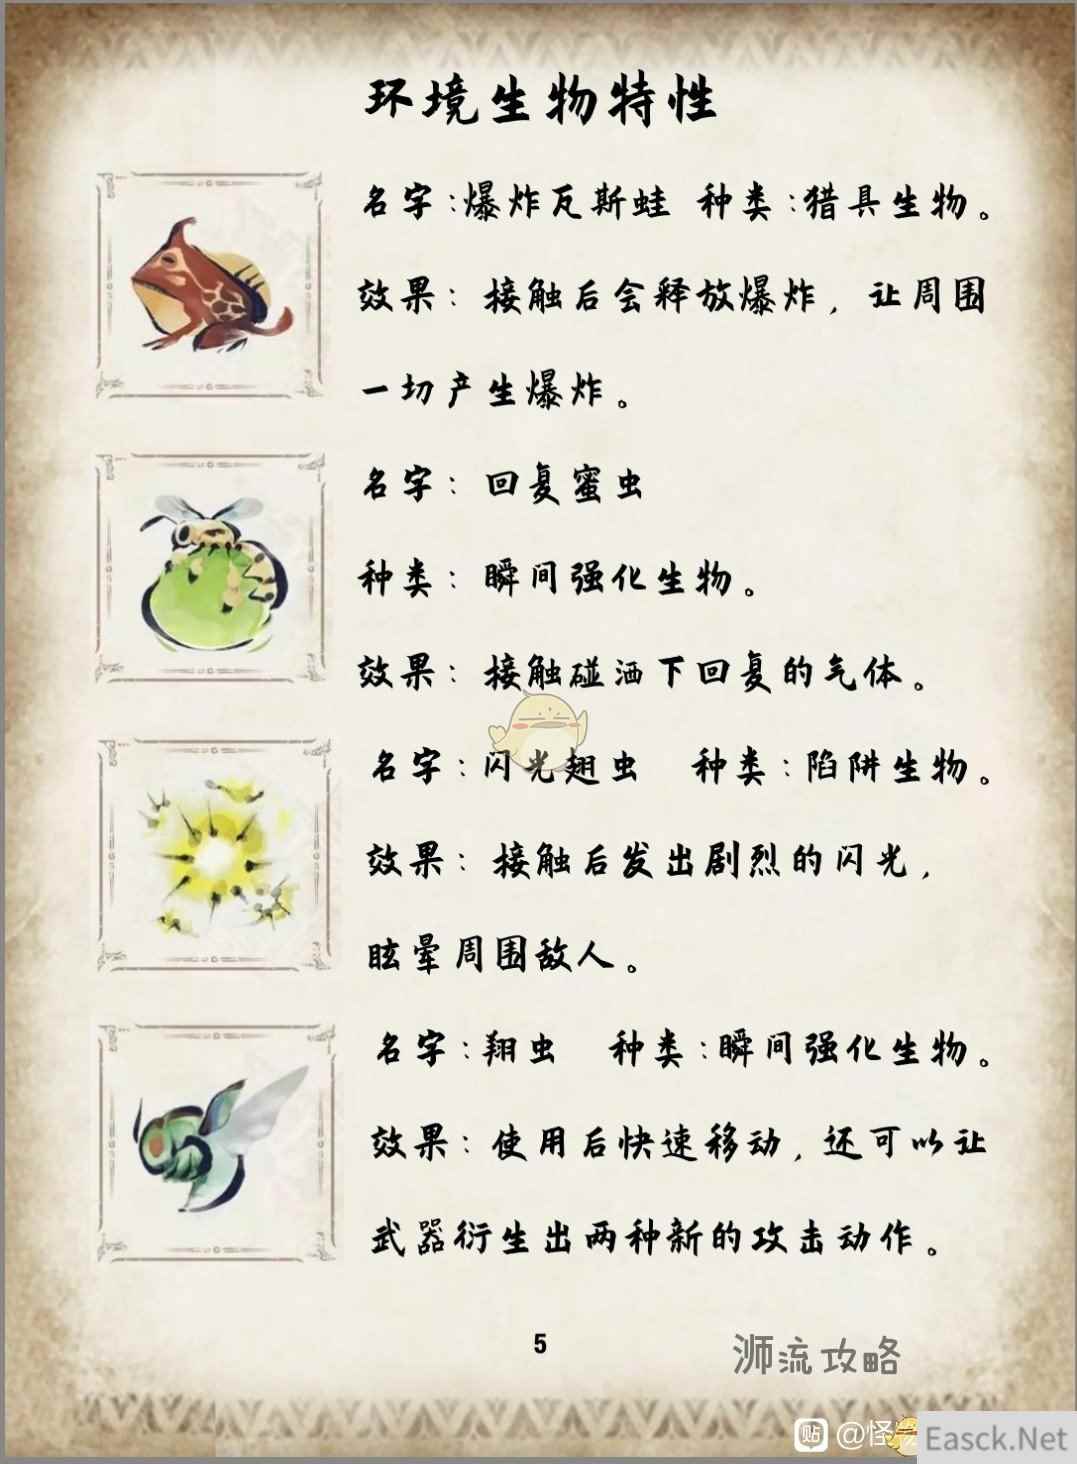 环境生物特性
名字:爆炸瓦斯蛙 种类:猎具生物。
效果: 接触后会释放爆炸, 让周围
一切产生爆炸。
名字: 回复蜜虫
种类: 瞬间强化生物。
效果: 接触碰洒下回复的气体。
名字:闪光翅虫 种类:陷阱生物。
效果: 接触后发出剧烈的闪光,
眩晕周围敌人。
名字:翔虫 种类:瞬间强化生物。
效果: 使用后快速移动, 还可以让
武器衍生出两种新的攻击动作。
5
浉流攻略
贴 @怪
Easck.Net